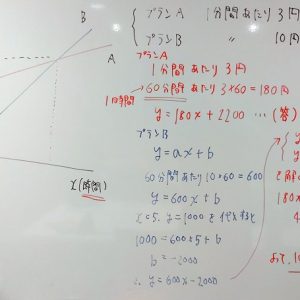 B
A
x(時間)
プランA 1分間あたり3円
プランB 〃 10円
プランA
1分間あたり3円
60分間あたり3×60=180円
1時間
y=180x+1200 …(答)
プランB
y=ax+b
60分間あたり10×60=600
y=600x+b
x=5, y=1000を代入すると
1000=600×5+b
b=-2000
∴y=600x-2000
を解
180x
x